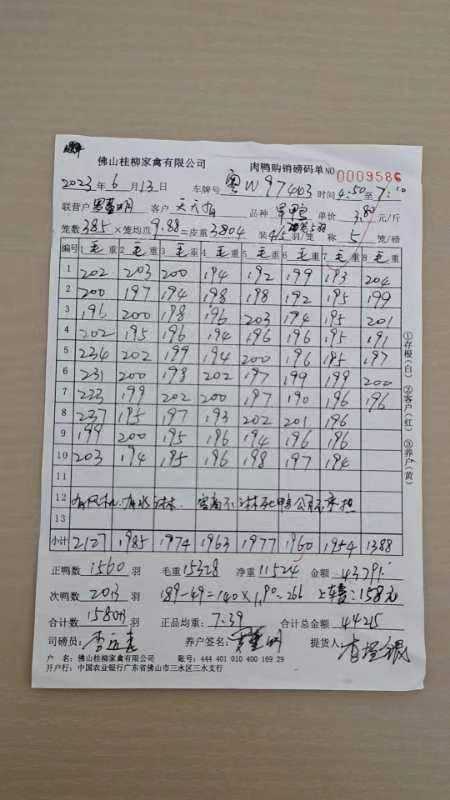 佛山桂柳家禽有限公司 肉鸭购销磅码单 NO 0009586
2023年6月13日 车牌号 粤W97403 时间 4:50 至 7:10
联营户 客户 品种 单价 3.80 元/斤
笼数 385 ×笼均皮 9.88 =皮重 3804 装4/5羽/笼 称 5 笼/磅
编号 1毛重 2毛重 3毛重 4毛重 5毛重 6毛重 7毛重 8毛重
1 202 203 200 194 192 199 193 204
2 200 197 194 198 198 192 195 199
3 196 200 198 196 203 194 195 201
4 202 195 196 194 196 196 195 191
5 234 202 199 194 200 196 185 197
6 231 200 198 202 197 199 199 200
7 223 199 202 200 197 190 196 196
8 237 195 197 193 202 201 196
9 199 200 195 196 194 196 196
10 203 194 195 196 198 197 194
11
12
13
小计 2127 1985 1974 1963 1977 1960 1954 1388
①存根(白) ②客户(红) ③养户(黄)
正鸭数 1560 羽 毛重 15328 净重 11524 金额 43791
次鸭数 20 羽 189-49=140×1.90=266 上车费:158元
合计数 1580 羽 正品均重: 7.39 合计总金额 44215
司磅员: 养户签名: 提货人:
户 名: 佛山桂柳家禽有限公司 账号: 444 401 010 400 169 29
开户行: 中国农业银行广东省佛山市三水区三水支行